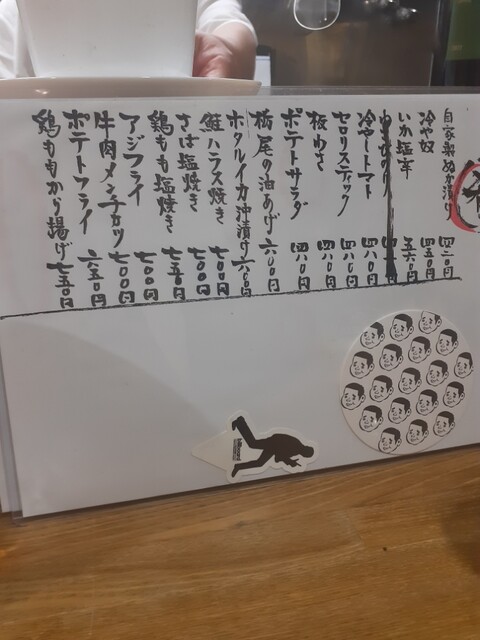 自家製ぬか漬け 四二〇円
冷や奴 四五〇円
いか塩辛 五六〇円
冷やしトマト 四八〇円
セロリスティック 四八〇円
板わさ 四八〇円
ポテトサラダ 四八〇円
栃尾の油あげ 六〇〇円
ホタルイカ沖漬け 六八〇円
鮭ハラス焼き 七〇〇円
さば塩焼き 七〇〇円
鶏もも塩焼き 七五〇円
アジフライ 七〇〇円
牛肉メンチカツ 七〇〇円
ポテトフライ 六五〇円
鶏ももから揚げ 七五〇円